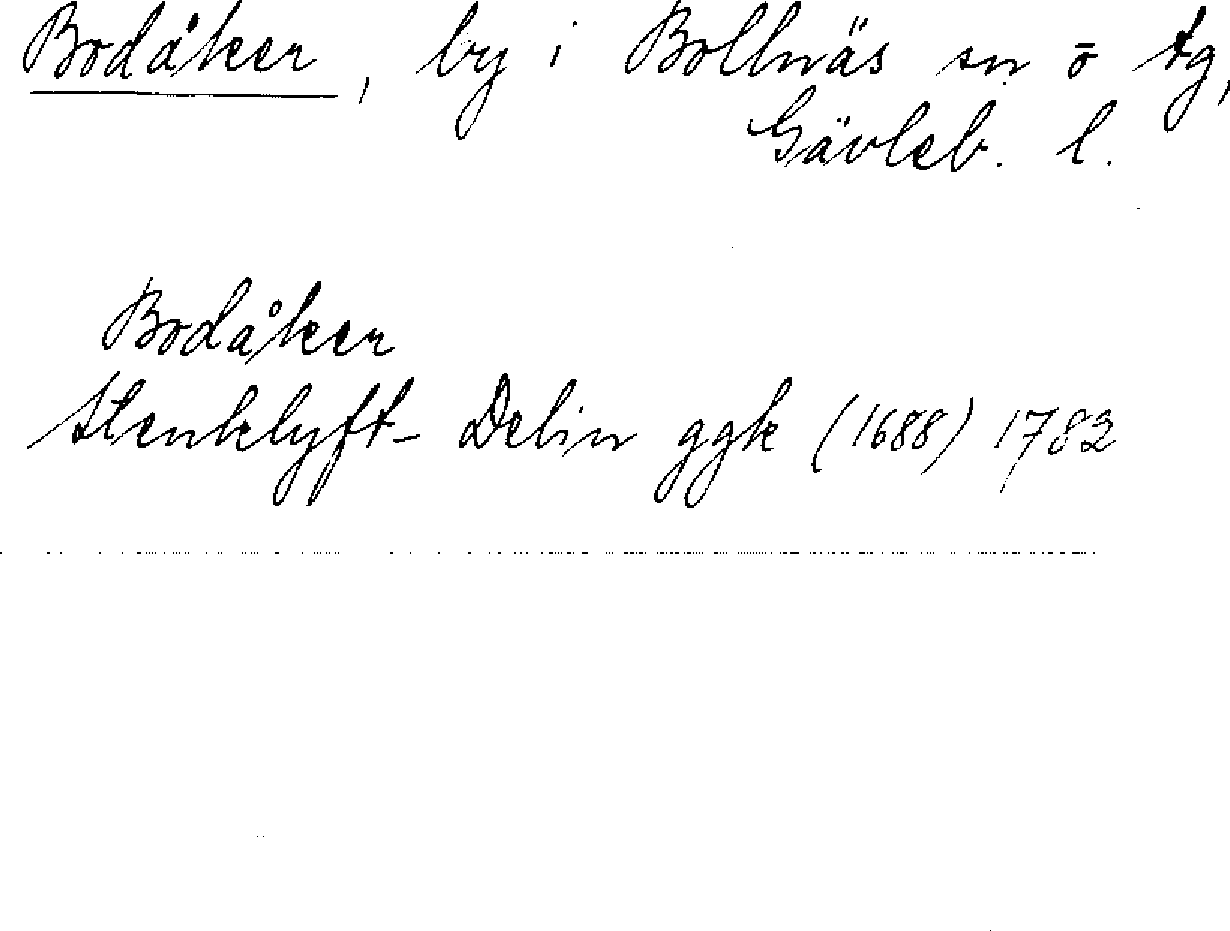 Bodåker, by i Bollnäs sn o tg,
Gävleb. l.
Bodåker
Stenklyft- Delin ggk (1688) 1782